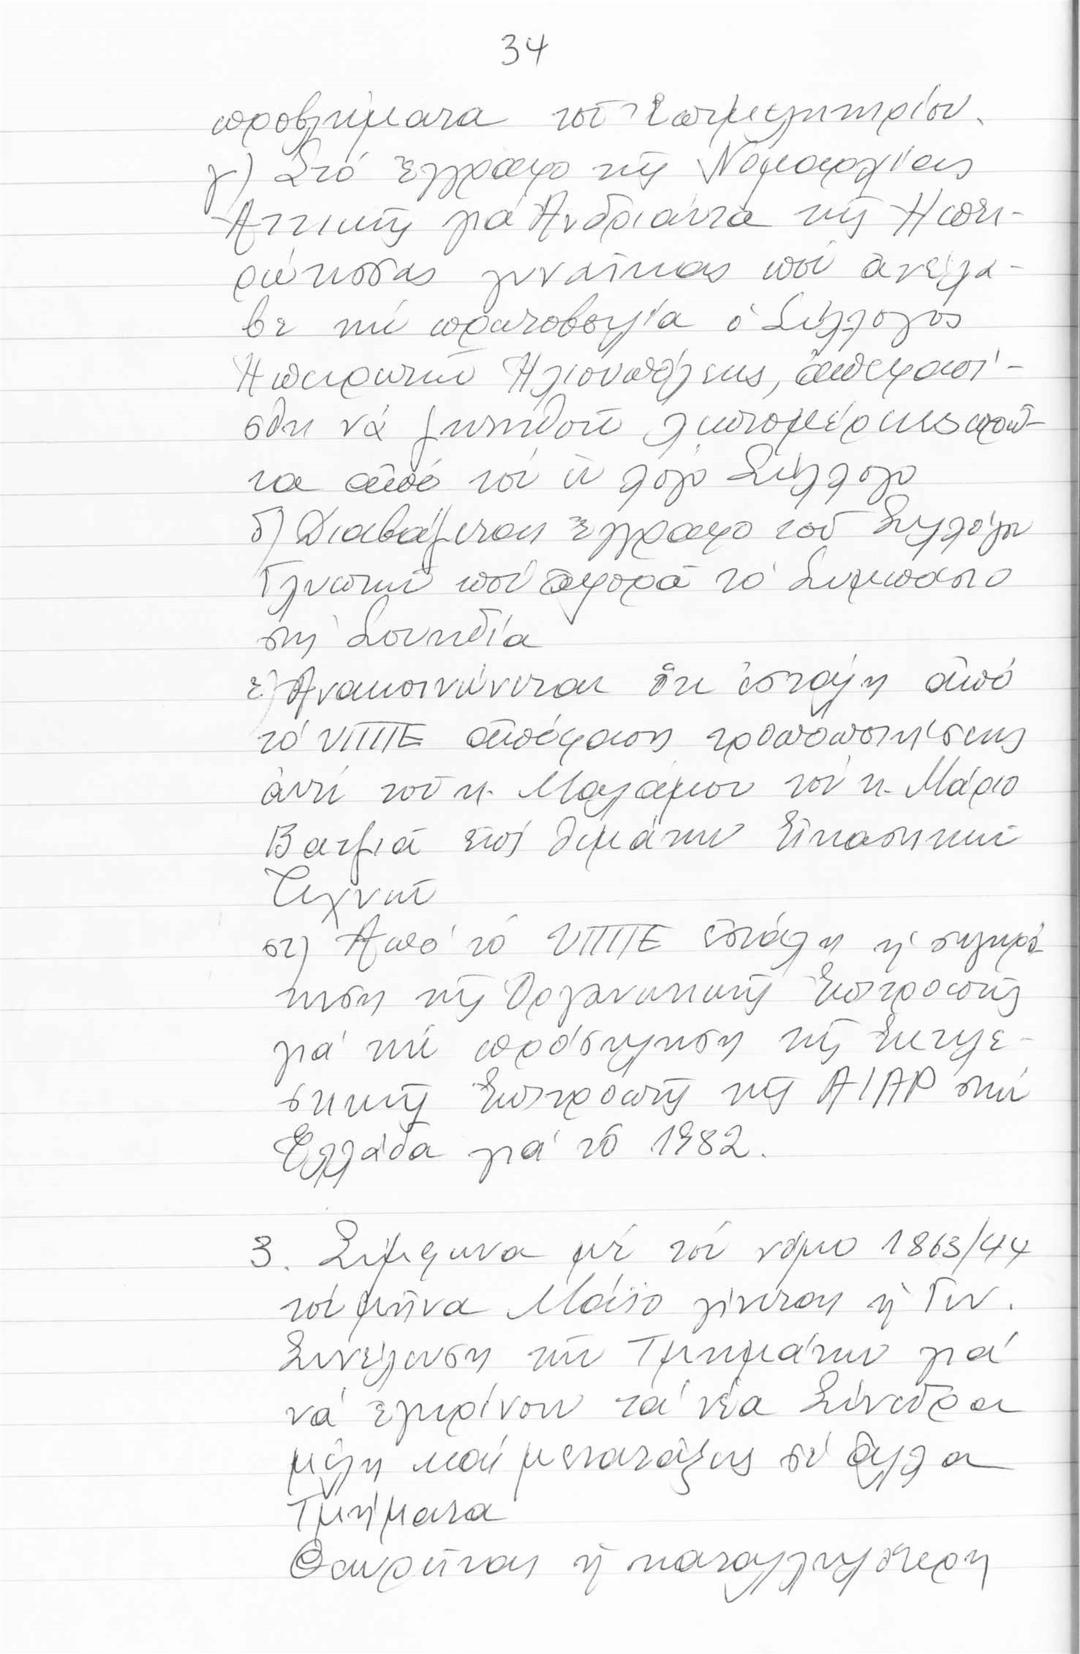 34
προβλήματα τοῦ Ἐπιμελητηρίου.
γ) Στό ἔγγραφο τῆς Νομαρχίας
Ἀττικῆς γιά Ἀνδριάντα τῆς Ἠπει-
ρώτισσας γυναῖκας πού ἀνέλα-
βε τήν πρωτοβουλία ὁ Σύλλογος
Ἠπειρωτῶν Ἡλιουπόλεως, ἀπεφασί-
σθη νά ζητηθοῦν λεπτομέρειες πρῶ-
τα ἀπό τόν ἐν λόγο Σύλλογο
δ) Διαβάζεται ἔγγραφο τοῦ Συλλόγου
Γλυπτῶν πού ἀφορᾶ τό Συμπόσιο
στή Σουηδία
ε) Ἀνακοινώνεται ὅτι ἐστάλη ἀπό
τό ΥΠΠΕ ἀπόφαση τροποποιήσεως
ἀντί τοῦ κ. Μαλάμου τόν κ. Μάριο
Βατζιᾶ ἐπί θεμάτων Εἰκαστικῶν
Τεχνῶν
στ) Ἀπό τό ΥΠΠΕ ἐστάλη ἡ συγκρό
τηση τῆς Ὀργανωτικῆς Ἐπιτροπῆς
γιά τήν πρόσκληση τῆς Ἐκτελε-
στικῆς Ἐπιτροπῆς τῆς AIAP στήν
Ἑλλάδα γιά τό 1982.
3. Σύμφωνα μέ τόν νόμο 1863/44
τόν μῆνα Μάϊο γίνεται ἡ Γεν.
Συνέλευση τῶν Τμημάτων γιά
νά ἐγκρίνουν τά νέα Σύνεδρα
μέλη καί μετατάξεις σέ ἄλλα
Τμήματα
Θεωρεῖται ἡ καταλληλότερη